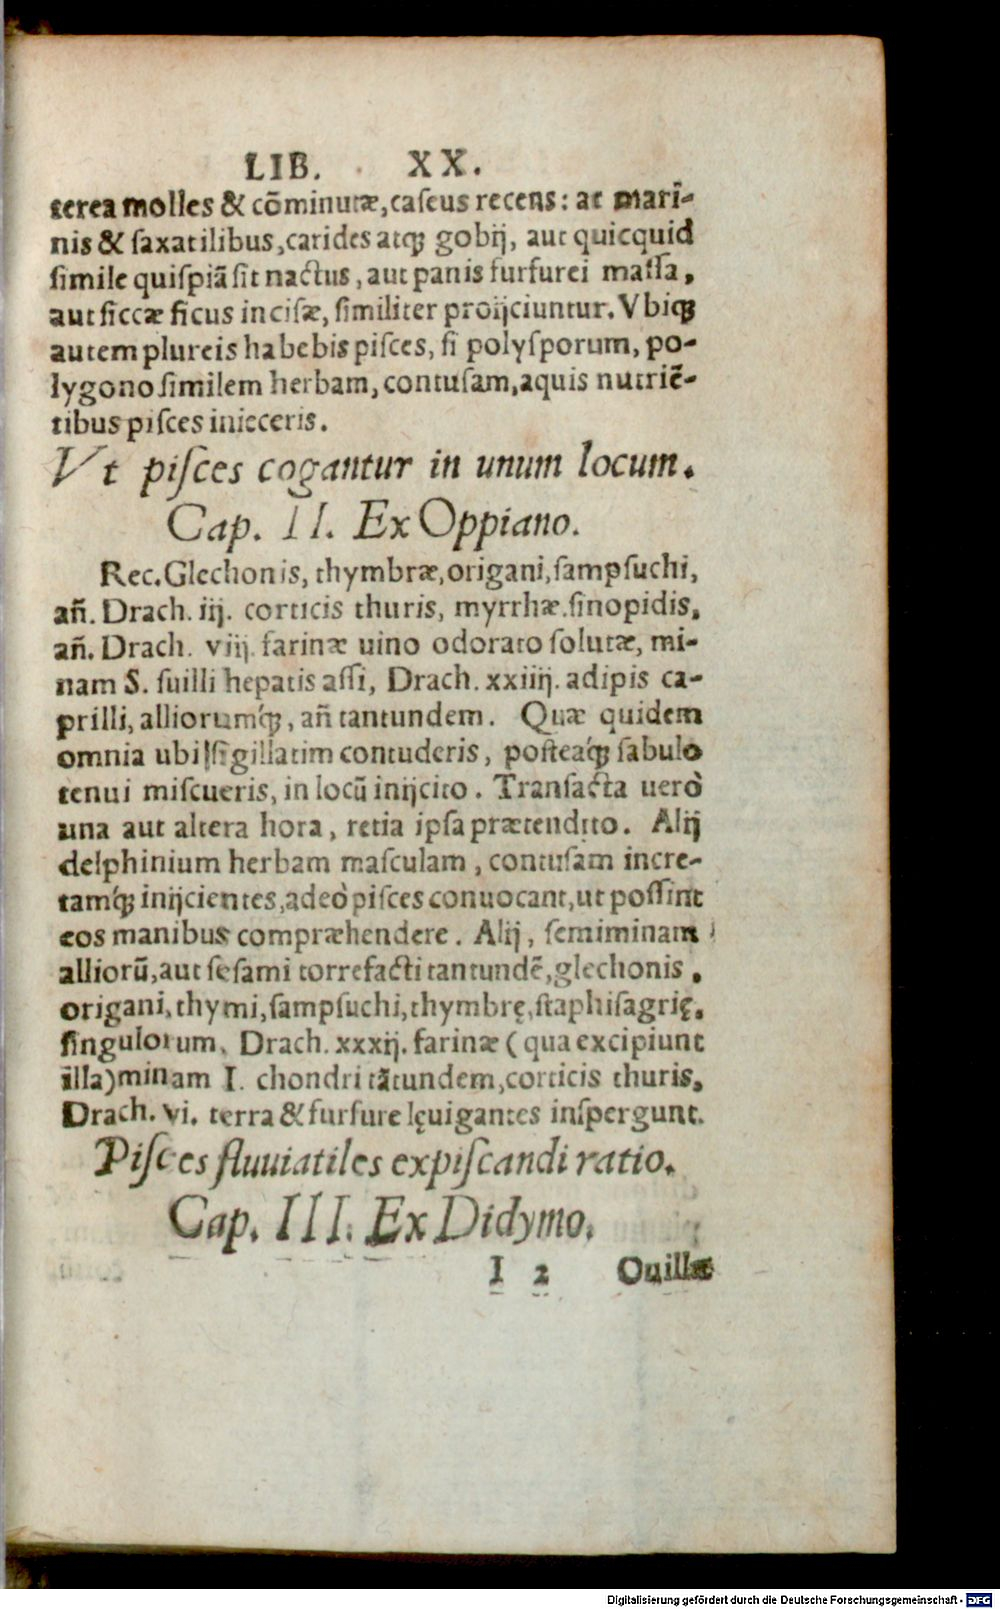 LIB. XX.
terea molles & cõminutæ, caſeus recens: at mari̅-
nis & ſaxatilibus, carides atq́; gobij, aut quicquid
ſimile quiſpiã ſit nactus, aut panis furfurei maſſa,
aut ſiccæ ficus inciſæ, ſimiliter proijciuntur. Vbiq́;
autem plureis habebis piſces, ſi polyſporum, po-
lygono ſimilem herbam, contuſam, aquis nutriẽ-
tibus piſces inieceris.
Vt piſces cogantur in unum locum.
Cap. II. Ex Oppiano.
Rec. Glechonis, thymbræ, origani, ſampſuchi,
añ. Drach. iij. corticis thuris, myrrhæ. ſinopidis,
añ. Drach. viij. farinæ uino odorato ſolutæ, mi-
nam S. ſuilli hepatis aſſi, Drach. xxiiij. adipis ca-
prilli, alliorumq́;, añ tantundem. Quæ quidem
omnia ubi ſigillatim contuderis, poſteaq́; ſabulo
tenui miſcueris, in locũ inijcito. Tranſacta uerò
una aut altera hora, retia ipſa prætendito. Alij
delphinium herbam maſculam, contuſam incre-
tamq́; inijcientes, adeò piſces conuocant, ut poſſint
eos manibus compræhendere. Alij, ſemiminam
alliorũ, aut ſeſami torrefacti tantundẽ, glechonis,
origani, thymi, ſampſuchi, thymbrę, ſtaphiſagrię,
ſingulorum, Drach. xxxij. farinæ (qua excipiunt
illa) minam I. chondri tãtundem, corticis thuris,
Drach. vi. terra & furfure lęuigantes inſpergunt.
Piſces fluuiatiles expiſcandi ratio.
Cap. III. Ex Didymo.
I 2 Ouillæ
Digitalisierung gefördert durch die Deutsche Forschungsgemeinschaft - DFG